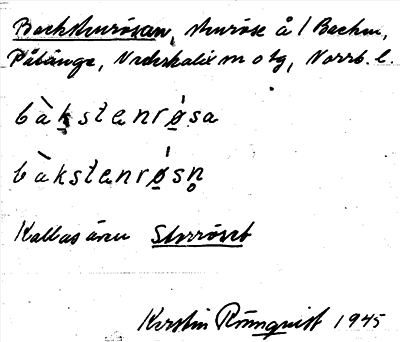 Backstenrösan, stenröse å / Backen,
Påläng​e, Nederkalix m otg, Norrb. l.
bàkstenrø̀sa
bàkstenrø̀sn̥
Kallas även Storröset
Kerstin Rönnquist 1945